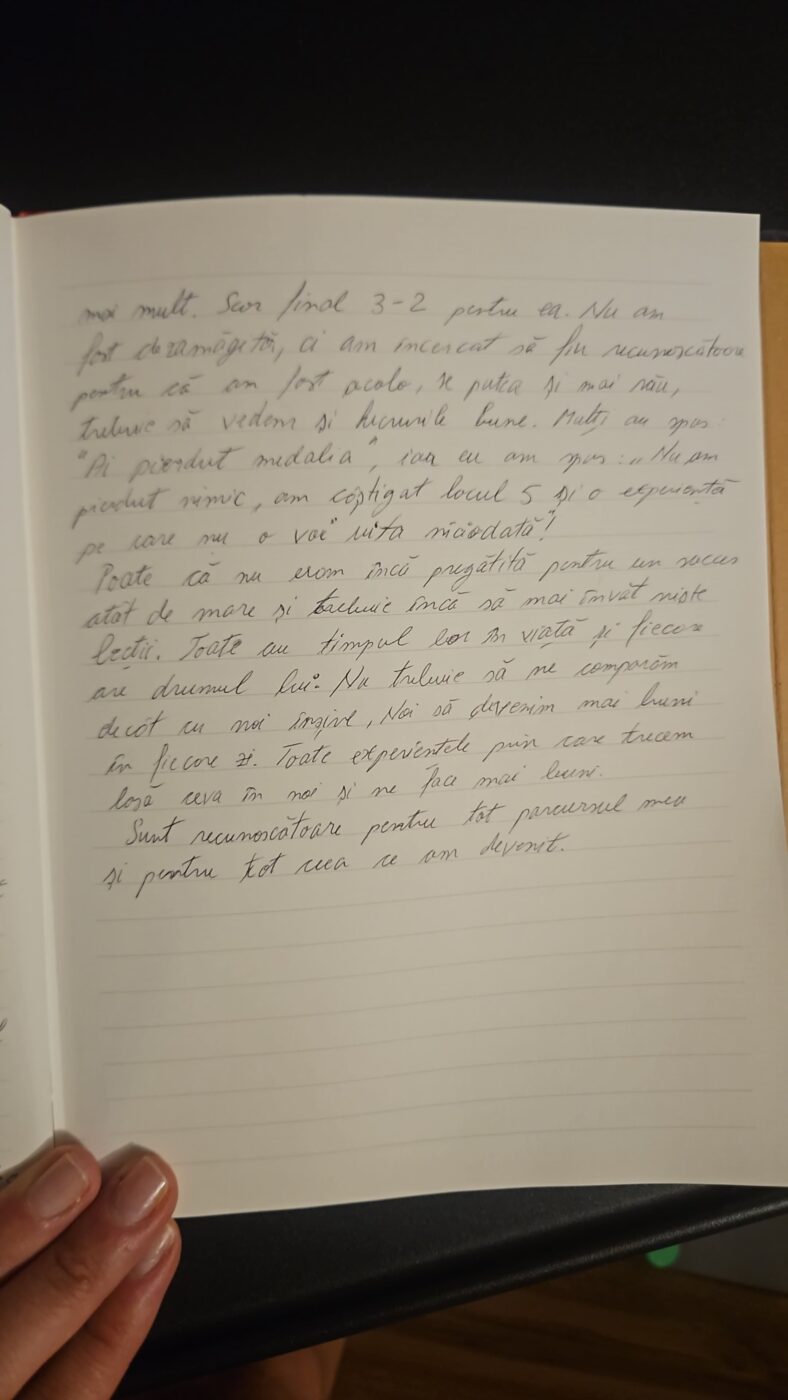 mai mult. Scor final 3-2 pentru ea. Nu am
fost dezamăgită, ci am încercat să fiu recunoscătoare
pentru că am fost acolo, se putea și mai rău,
trebuie să vedem și lucrurile bune. Mulți au spus:
"Ai pierdut medalia", iar eu am spus: „Nu am
pierdut nimic, am câștigat locul 5 și o experiență
pe care nu o voi uita niciodată"!
Poate că nu eram încă pregătită pentru un succes
atât de mare și trebuie încă să mai învăt niște
lecții. Toate au timpul lor în viață și fiecare
are drumul lui. Nu trebuie să ne comparăm
decât cu noi înșine, Noi să devenim mai buni
în fiecare zi. Toate experientele prin care trecem
lasă ceva în noi și ne face mai buni.
Sunt recunoscătoare pentru tot parcursul meu
și pentru tot ceea ce am devenit.